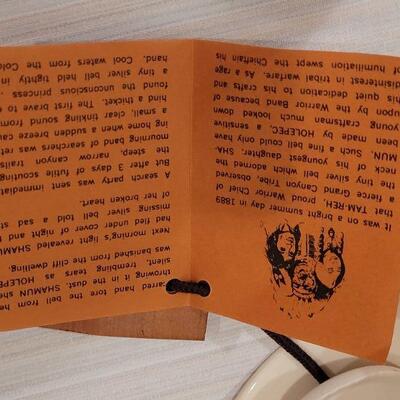 It was on a bright summer day in 1889
that TAM-REH, proud Warrior Chief of
a fierce Grand Canyon Tribe, observed
the tiny silver bell which adorned the
neck of his youngest daughter, SHA-
MUN. Such a fine bell could only have
been made by HOLEPEC, a sensitive
young craftsman much looked down
upon by the Warrior Band because of
his quiet dedication to his crafts and
disinterest in tribal warfare. As a rage
of humiliation swept the Chieftain his
carred hand tore the bell from he
throwing it in the dust. SHAMUN she
silent, trembling tears as HOLEPE
was banished from the cliff dwelling.
next morning's light revealed SHAMU
had fled under cover of night and t
missing silver bell told a sad st
of her broken heart.
A search party was sent immediat
But after 3 days of futile scouting
the steep, narrow canyon trails
mourning band of searchers was ret
ing home when a sudden breeze ca
a small, clear tinkling sound from
hind a thicket. The first brave to e
found the unconscious princess . .
a tiny silver bell held tightly in
hand. Cool waters from the Colo